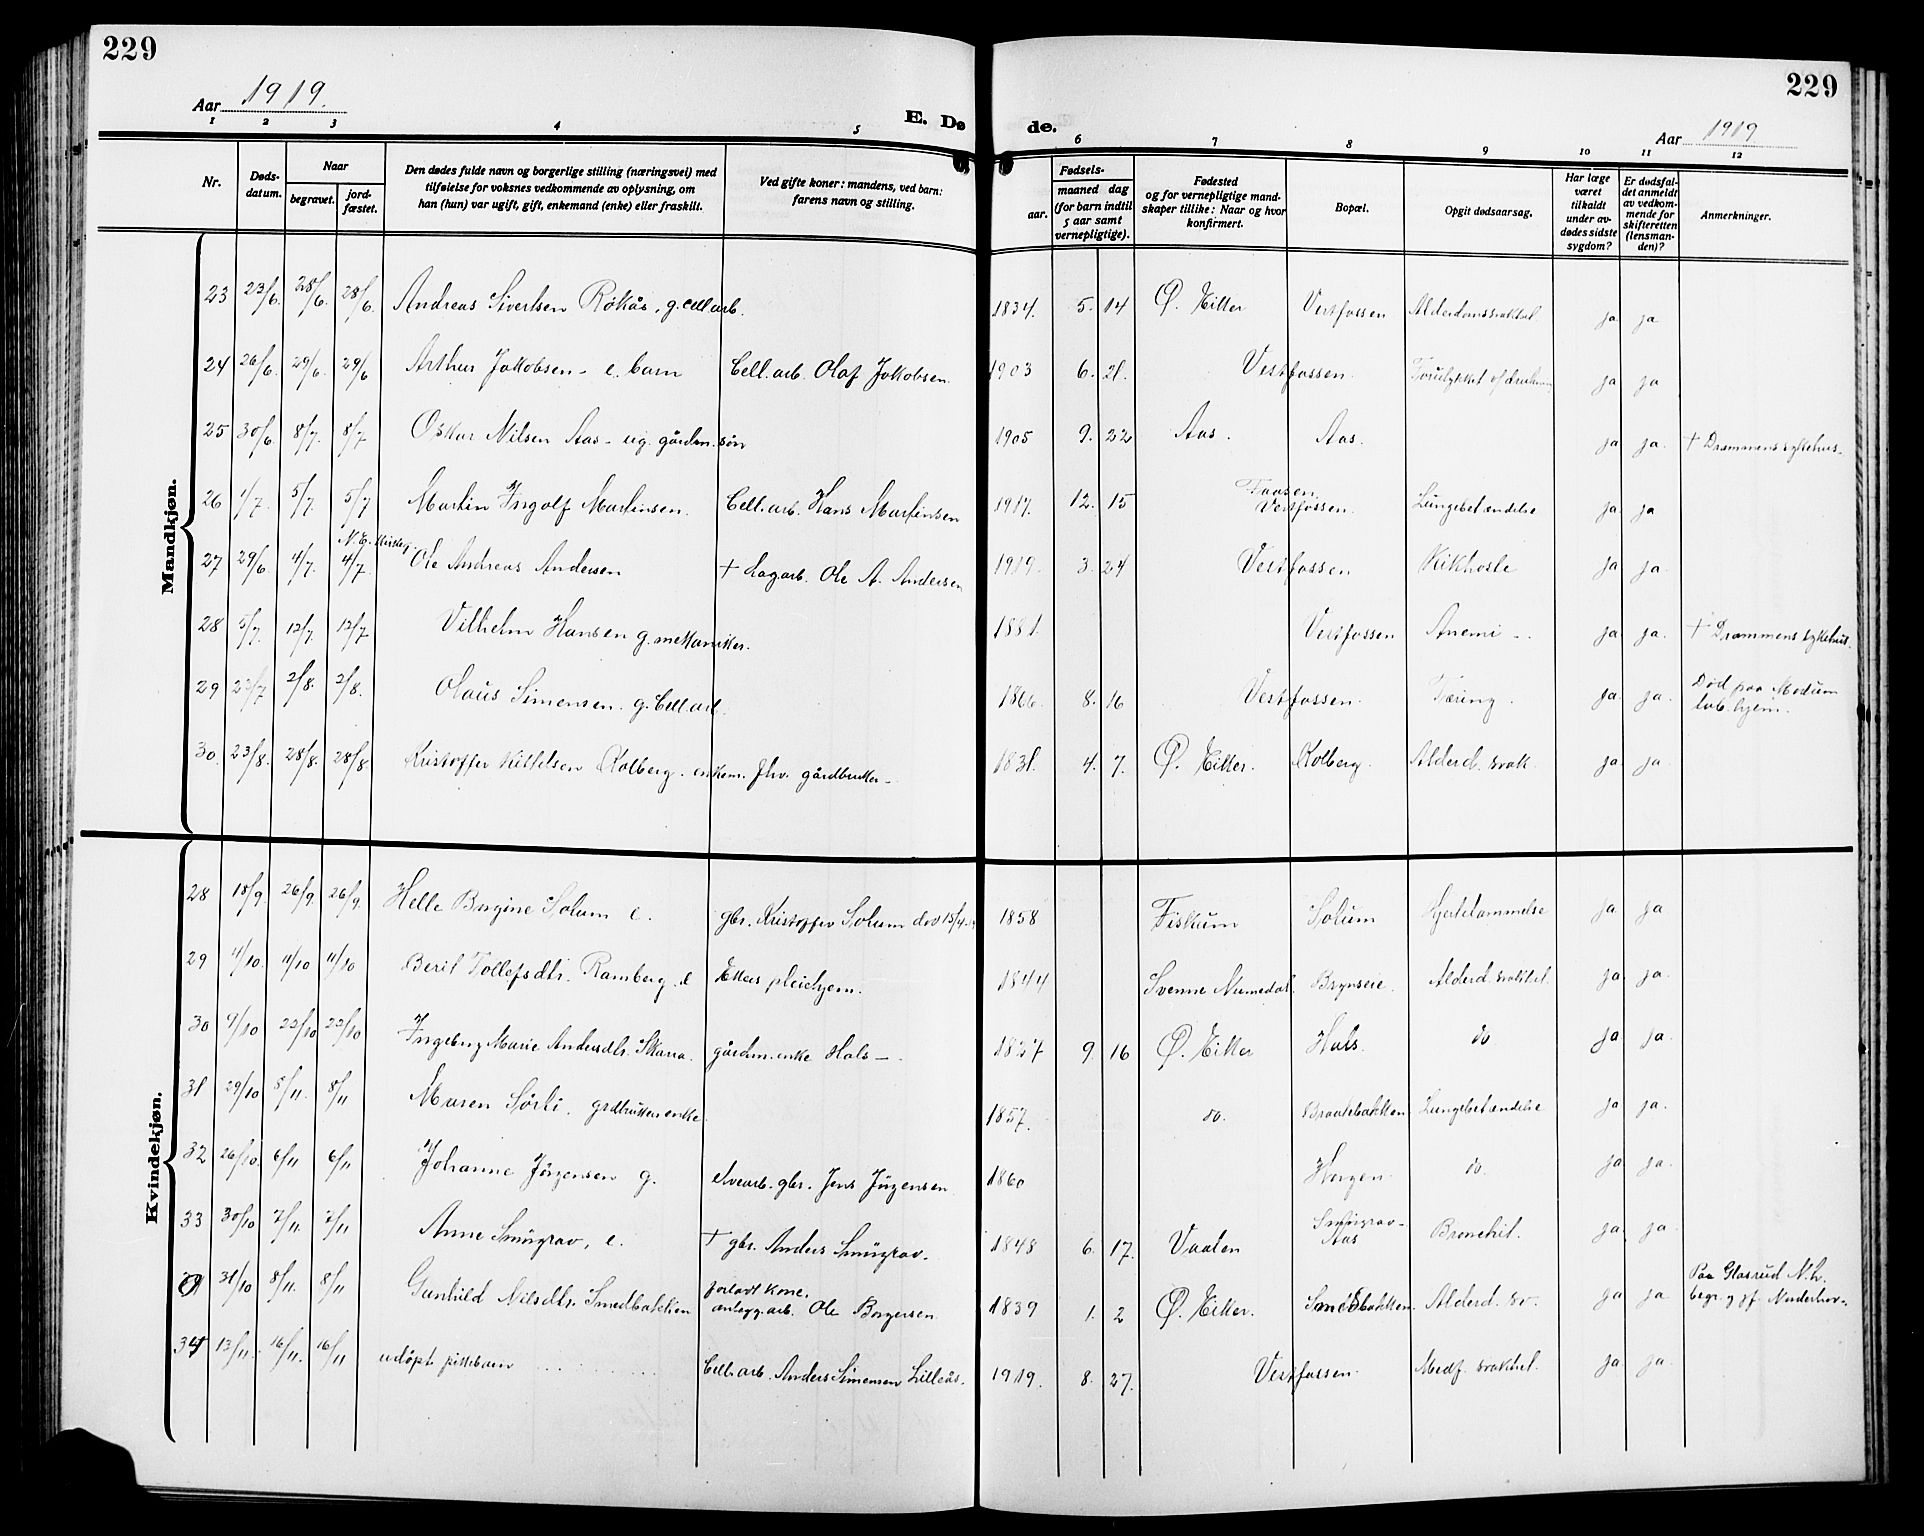 229
229
Aar 1919.
E. Dø
de.
Aar 1919
1 2 3 4 5 6 7 8 9 10 11 12
Nr.
Døds-
datum.
Naar
begravet.
jord-
fæstet.
Den dødes fulde navn og borgerlige stilling (næringsvei) med
tilføielse for voksnes vedkommende av oplysning, om
han (hun) var ugift, gift, enkemand (enke) eller fraskilt.
Ved gifte koner: mandens, ved barn:
farens navn og stilling.
Fødsels-
aar.
maaned dag
(for barn indtil
5 aar samt
vernepligtige).
Fødested
og for vernepligtige mand-
skaper tillike: Naar og hvor
konfirmert.
Bopæl.
Opgit dødsaarsag.
Har læge
været
tilkaldt
under av-
dødes sidste
sygdom?
Er dødsfal-
det anmeldt
av vedkom-
mende for
skifteretten
(lensman-
den)?
Anmerkninger.
Mandkjøn.
23 23/6. 28/6. 28/6. Andreas Sivertsen Røkås, g. cell.arb. 1834. 5. 14 Ø. Eiker Vestfossen Alderdomssvakhet ja ja
24 26/6. 29/6. 29/6 Arthur Jakobsen - e. barn Cell.arb. Olaf Jakobsen. 1903 6. 21. Vestfossen. ja ja
25 30/6. 8/7. 8/7 Oskar Nilsen Aas - ug. gårdm. søn 1905 9. 22 Aas. Aas. ja ja. † Drammens sykehus.
26 1/7. 5/7. 5/7 Martin Ingolf Martinsen. Cell.arb. Hans Martinsen 1917. 12. 15 Faasen Vestfossen. Lungebetændelse ja ja
27 29/6. 4/7. 4/7. Ole Andreas Andersen † Dagarb. Ole A. Andersen 1919. 3. 24 Vestfossen Kikhoste ja ja.
28 5/7. 12/7. 12/7 Vilhelm Hansen g. mekaniker. 1881. Vestfossen Anemi - . ja ja. † Drammens sykehus.
29 2/8. 2/8. Olaus Simensen. g. Cell.arb. 1866. 8. 16 Vestfossen. Tæring. ja ja. Død paa Modum
tub. hjem.
30. 23/8. 28/8. 28/8. Kristoffer Kittelsen Kolberg. enkem. fhv. gårdbruker - 1831. 4. 7. Ø. Eiker. Kolberg. Alderd. svak. ja ja.
Kvindekjøn.
28 18/9. 26/9. 26/9. Helle Borgine Solum e. gbr. Kristoffer Solum 1858 Fiskum Solum Hjertelammelse ja ja
29 4/10. 11/10 11/10 Berit Tollefsdtr. Ramberg. e Eikers pleiehjem. 1844 Svenne Numedal. Alderd. svakhet. ja ja.
30 9/10 22/10 22/10 Ingeborg Marie Andersdtr. Skara. gårdm. enke Hals - . 1827 9. 16 Ø. Eiker Hals. do ja ja.
31 29/10 5/11. 8/11 Maren Sørli. grdbrukerenke. 1857. do. Braatebakken. Lungebetændelse ja ja.
32 26/10. 6/11 6/11 Johanne Jørgensen g. elvearb. gbr. Jens Jørgensen. 1860 Horgen. do. ja ja.
33 30/10 7/11. 7/11 Anne Smørgrav, e. † gbr. Anders Smørgrav. 1848 6. 17. Smørgrav-
Aas Bronchit. ja ja.
31/10 8/11. 8/11 Gunhild Nilsdtr. Smedbakken forladt kone.
anlegg.arb. Ole Borgersen. 1839 1. 2 Ø. Eiker. Smedbakken. Alderd. sv. ja ja Paa Glasrud N.hr.
begr. g. pf. Norderhov.
34 13/11. 16/11. 16/11 udøpt pikebarn Cell.arb. Anders Simensen Lilleås. 1919. 8. 27. Vestfossen. Medf. svakhet. ja ja.